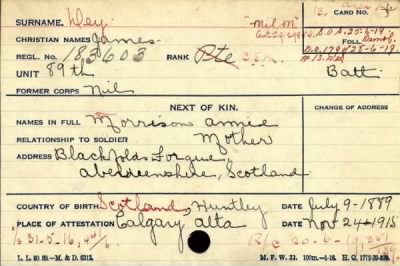 SURNAME. Ney "Mil M" CARD NO.
CHRISTIAN NAMES James FOLL.
REGL. NO. 183603 RANK Pte C.S.M.
UNIT 89th Batt.
FORMER CORPS Nil
NEXT OF KIN. CHANGE OF ADDRESS
NAMES IN FULL Morrison Annie
RELATIONSHIP TO SOLDIER Mother
ADDRESS Blackfolds Forgue,
Aberdeenshire, Scotland
COUNTRY OF BIRTH Scotland, Huntley DATE July 9-1889
PLACE OF ATTESTATION Calgary Alta DATE Nov 24-1915
S 31-5-16, R/C 20-6-19
L. L. 90 89.—M. & D. 6312. M. F. W. 22. 100m.—1-16. H. Q.